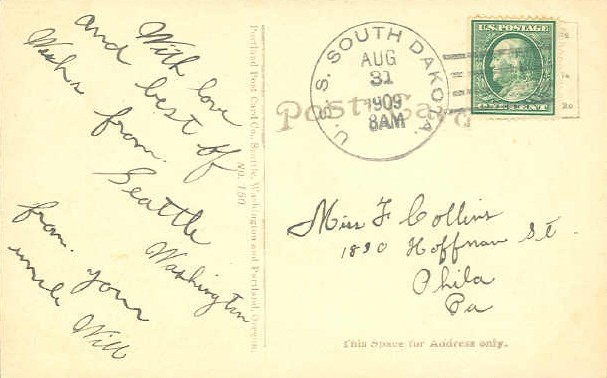 With love
and best of
Wishs from
Seattle
Washington
from your
uncle Will
Portland Post Card Co., Seattle, Washington and Portland, Oregon.
No. 150
U.S.S. SOUTH DAKOTA.
AUG
31
1909
8AM
U.S. POSTAGE
ONE CENT
Post Card
Miss F Collins
1830 Hoffman St.
Phila
Pa
This Space for Address only.